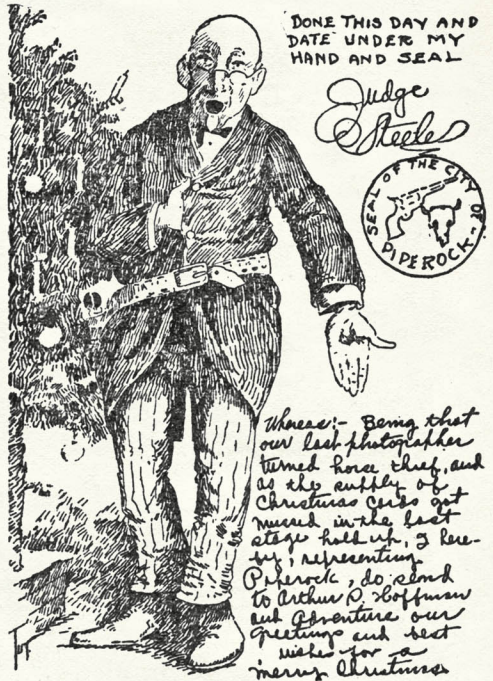 DONE THIS DAY AND
DATE UNDER MY
HAND AND SEAL
Judge
Steele
SEAL OF THE CITY OF
PIPEROCK-
Whereas:- Being that
our last photographer
turned horse thief, and
as the supply of
Christmas cards got
mussed in the last
stage hold up, I here-
by, representing
Piperock, do send
to Arthur S. Hoffman
and Adventure our
greetings and best
wishes for a
merry Christmas